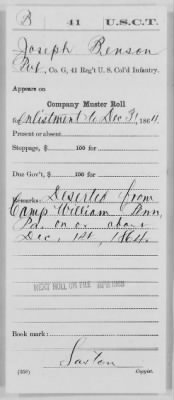 B 41 U.S.C.T.
Joseph Benson
Pvt, Co. G, 41 Reg't U. S. Col'd Infantry.
Appears on
Company Muster Roll
for Enlistment to Dec 31, 1864
Present or absent
Stoppage, $ 100 for
Due Gov't, $ 100 for
Remarks: Deserted from
Camp William Penn,
Pa. on or about
Dec, 1st, 1864.
NEXT ROLL ON FILE
Book mark:
Saxton
(358) Copyist.